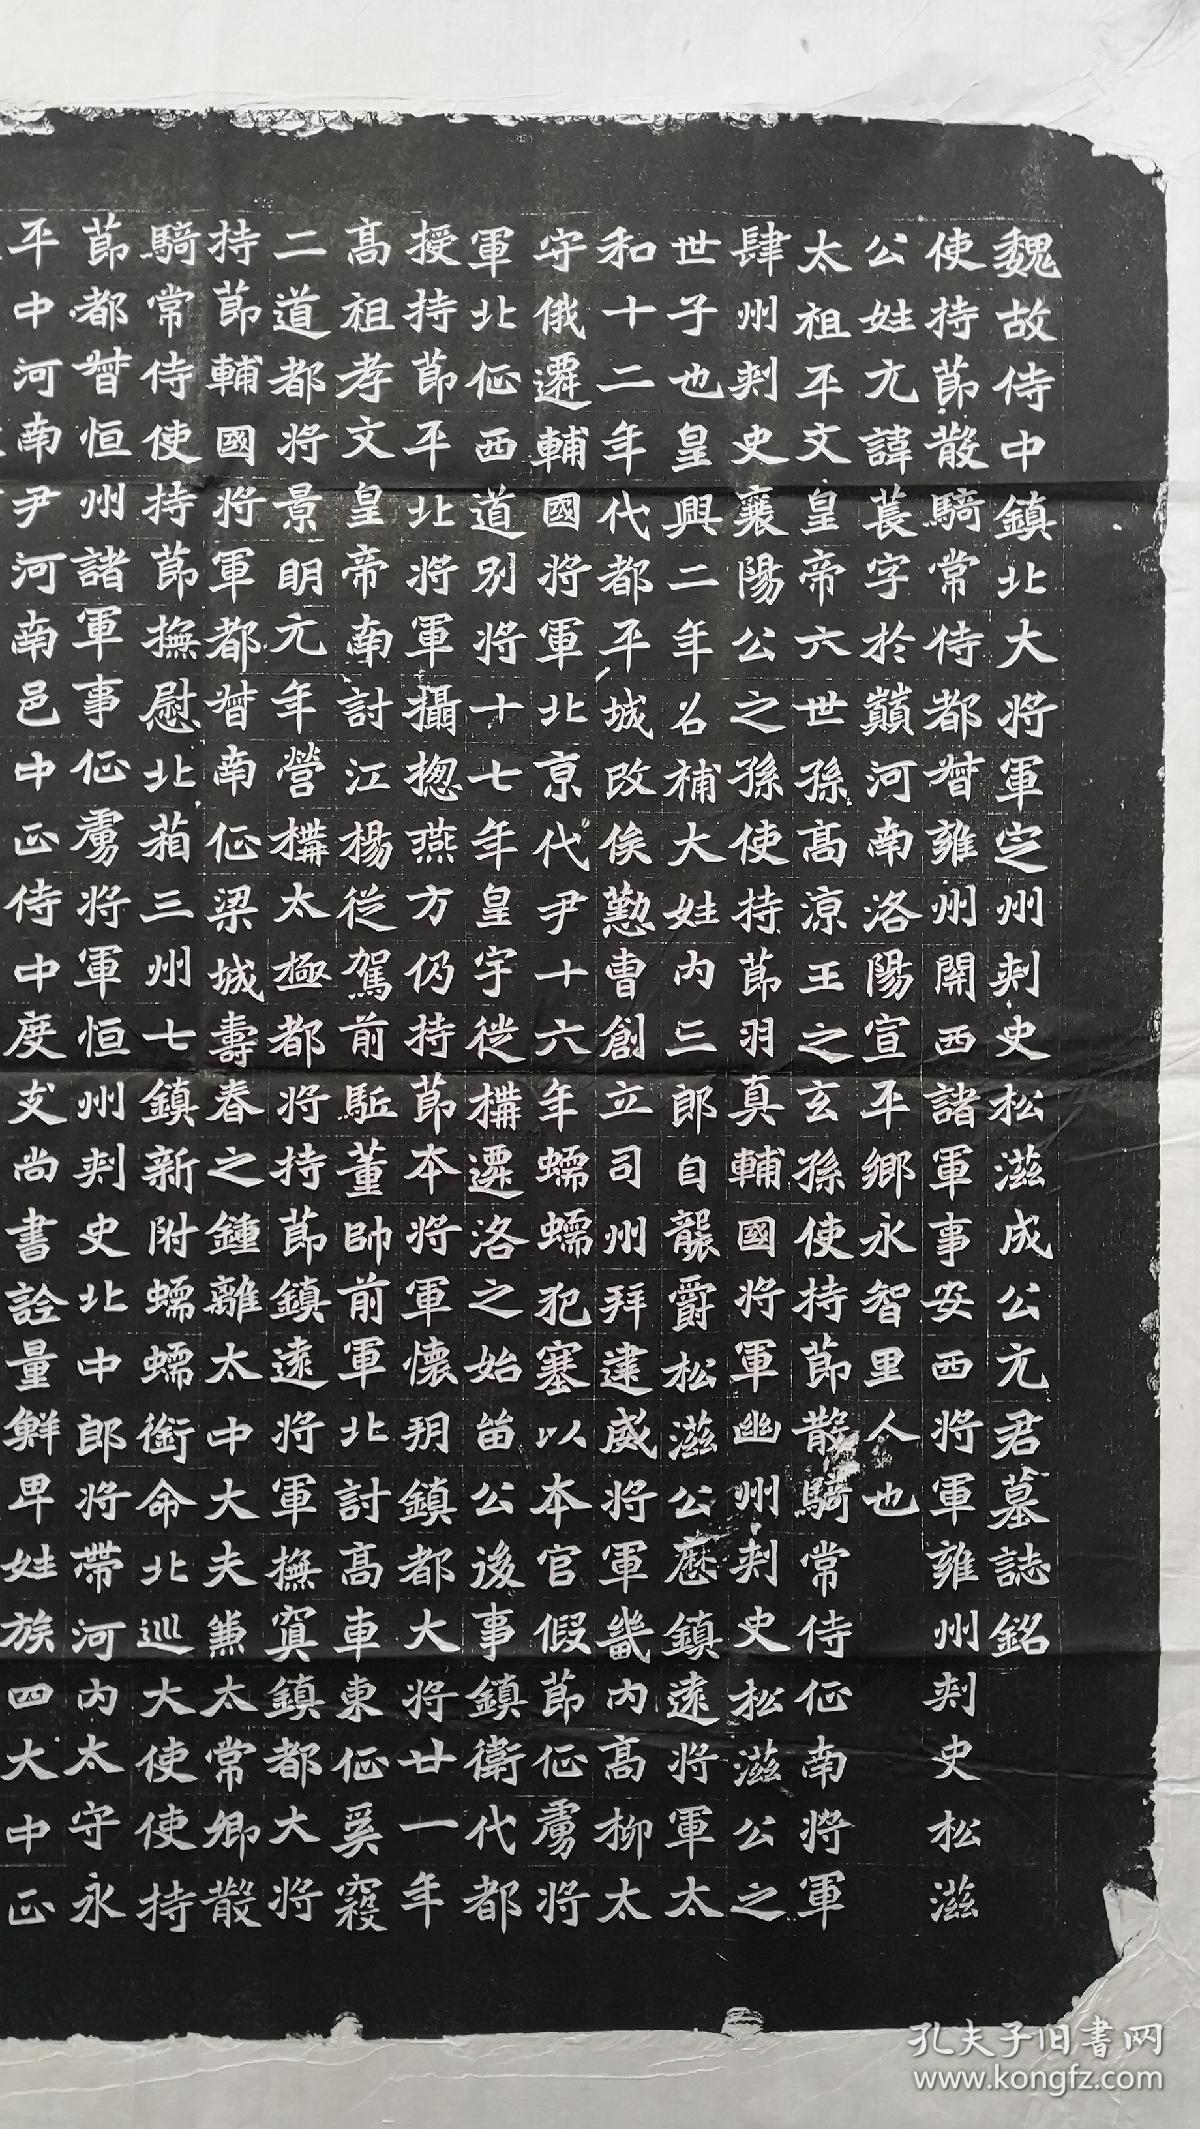 魏故侍中鎮北大將軍定州刺史松滋成公元君墓誌銘
使持節散騎常侍都督雍州開西諸軍事安西將軍雍州刺史松滋
公姓元諱萇字於巔河南洛陽宣平鄉永智里人也
太祖平文皇帝六世孫高涼王之玄孫使持節散騎常侍征南將軍
肆州刺史襄陽公之孫使持節羽真輔國將軍幽州刺史松滋公之
世子也皇興二年召補大姓內三郎自襲爵松滋公歷鎮遠將軍太
和十二年代都平城改俟懃曹創立司州拜建威將軍畿內高柳太
守俄遷輔國將軍北京代尹十六年蠕蠕犯塞以本官假節征虜將
軍北征西道別將十七年皇宇徙構遷洛之始留公後事鎮衛代都
授持節平北將軍攝揔燕方仍持節本將軍懷朔鎮都大將廿一年
高祖孝文皇帝南討江楊從駕前駈董帥前軍北討高車東征奚寇
二道都將景明元年營構太極都將持節鎮遠將軍撫寘鎮都大將
持節輔國將軍都督南征梁城壽春之鍾離太中大夫兼太常卿散
騎常侍使持節撫慰北葙三州七鎮新附蠕蠕銜命北巡大使使持
節都督恒州諸軍事征虜將軍恒州刺史北中郎將帶河內太守永
平中河南尹河南邑中正侍中度支尚書詮量鮮卑姓族四大中正
孔夫子旧书网
www.kongfz.com